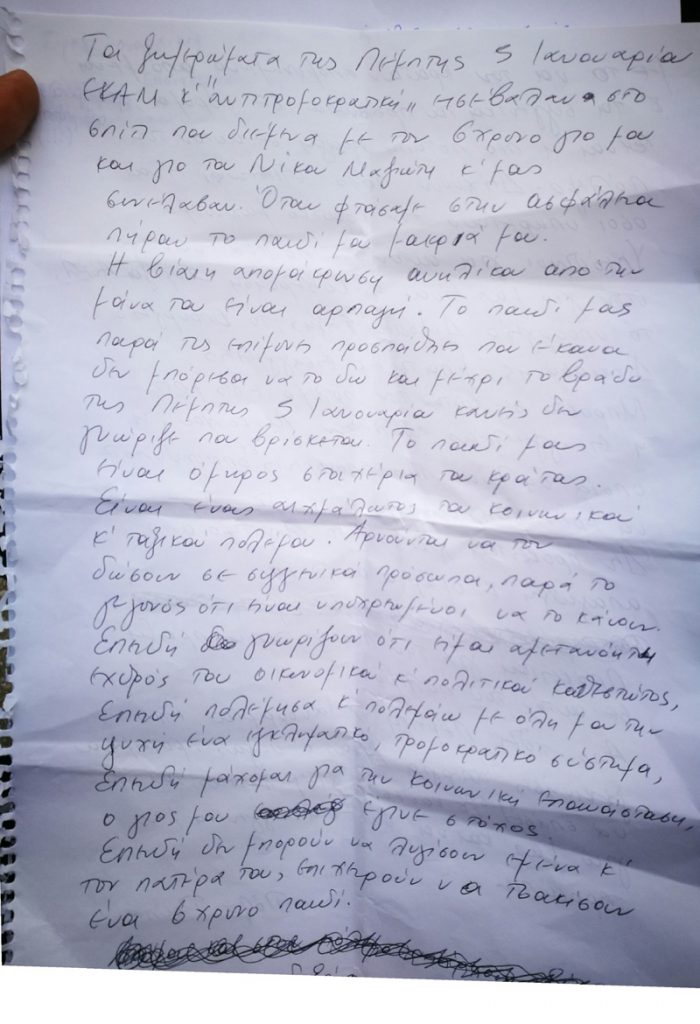 Τα ξημερώματα της Πέμπτης 5 Ιανουαρίου
ΕΚΑΜ κ' "αντιτρομοκρατική" εισέβαλαν στο
σπίτι που διέμενα με τον 6χρονο γιο μου
και γιο του Νίκου Μαζιώτη κ' μας
συνέλαβαν. Όταν φτάσαμε στην ασφάλεια
πήραν το παιδί μου μακριά μου.
Η βίαιη απομάκρυνση ανηλίκου από την
μάνα του είναι αρπαγή. Το παιδί μας
παρά τις επίμονες προσπάθειες που έκανα
δεν μπόρεσα να το δω και μέχρι το βράδυ
της Πέμπτης 5 Ιανουαρίου κανείς δεν
γνώριζε που βρίσκεται. Το παιδί μας
είναι όμηρος στα χέρια του κράτους.
Είναι ένας αιχμάλωτος του κοινωνικού
κ' ταξικού πολέμου. Αρνούνται να τον
δώσουν σε συγγενικά πρόσωπα, παρά το
γεγονός ότι είναι υποχρεωμένοι να το κάνουν.
Επειδή γνωρίζουν ότι είμαι αμετανόητη
εχθρός του οικονομικού κ' πολιτικού καθεστώτος,
Επειδή πολέμησα κ' πολεμάω με όλη μου την
ψυχή ένα εγκληματικό, τρομοκρατικό σύστημα,
Επειδή μάχομαι για την κοινωνική επανάσταση,
ο γιος μου έγινε στόχος.
Επειδή δεν μπορούν να λυγίσουν εμένα κ'
τον πατέρα του, επιχειρούν να τσακίσουν
ένα 6χρονο παιδί.